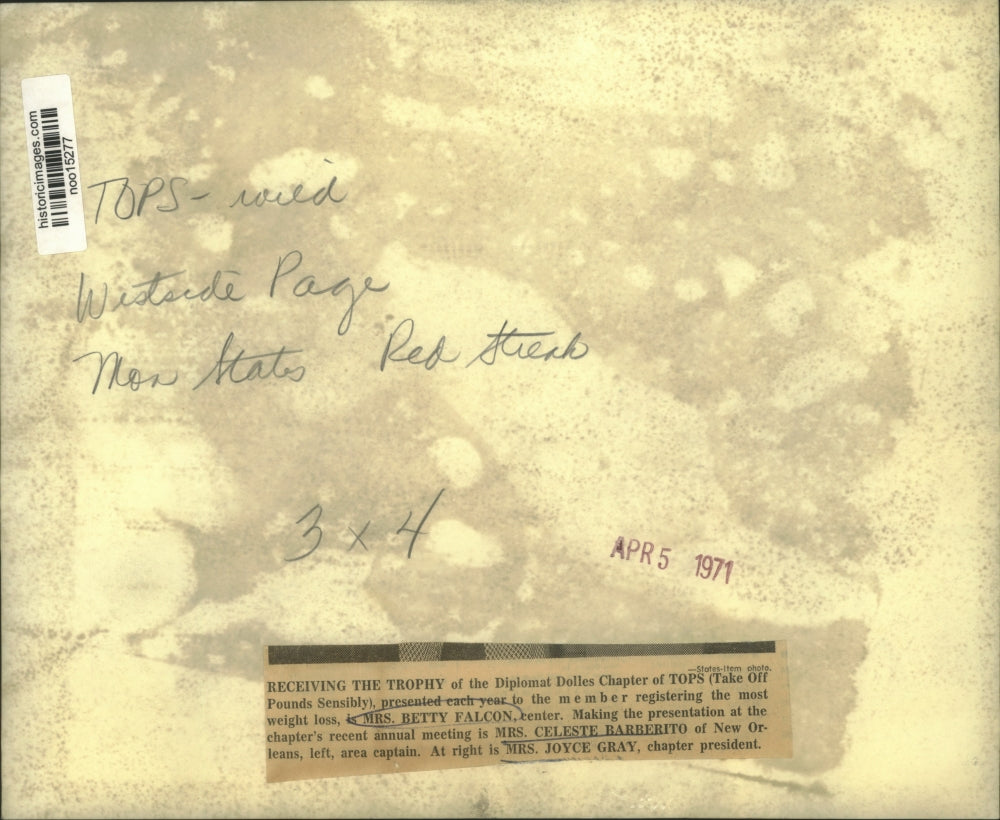 historicimages.com
noo15277
TOPS - wild
Westside Page
Mon States Red Streak
3 x 4
APR 5 1971
—States-Item photo.
RECEIVING THE TROPHY of the Diplomat Dolles Chapter of TOPS (Take Off
Pounds Sensibly), presented each year to the member registering the most
weight loss, is MRS. BETTY FALCON, center. Making the presentation at the
chapter's recent annual meeting is MRS. CELESTE BARBERITO of New Or-
leans, left, area captain. At right is MRS. JOYCE GRAY, chapter president.